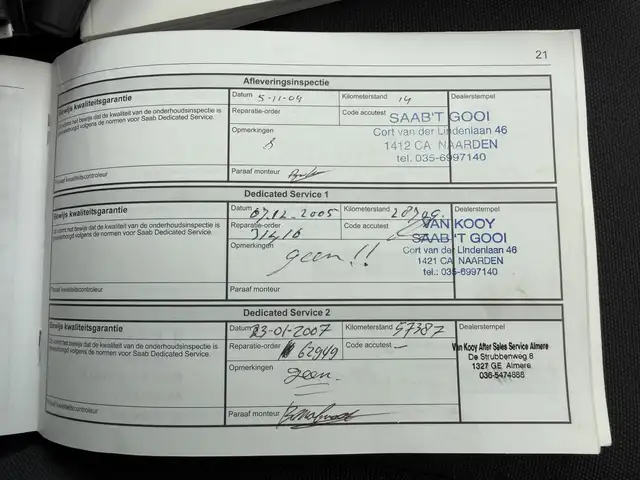 21
Afleveringsinspectie
Bewijs kwaliteitsgarantie
Datum 5-11-04
Kilometerstand 14
Dealerstempel
komt het bewijs dat de kwaliteit van de onderhoudsinspectie is
gewaarborgd volgens de normen voor Saab Dedicated Service.
Reparatie-order
Code accutest
Opmerkingen
SAAB 'T GOOI
Cort van der Lindenlaan 46
1412 CA NAARDEN
tel. 035-6997140
Paraaf kwaliteitscontroleur
Paraaf monteur
Dedicated Service 1
Bewijs kwaliteitsgarantie
Datum 07.12.2005
Kilometerstand
Dealerstempel
komt het bewijs dat de kwaliteit van de onderhoudsinspectie is
gewaarborgd volgens de normen voor Saab Dedicated Service.
Reparatie-order
Code accutest
Opmerkingen
geen!!
VAN KOOY
SAAB 'T GOOI
Cort van der Lindenlaan 46
1421 CA NAARDEN
tel.: 035-6997140
Paraaf kwaliteitscontroleur
Paraaf monteur
Dedicated Service 2
Bewijs kwaliteitsgarantie
Datum 23-01-2007
Kilometerstand 57387
Dealerstempel
komt het bewijs dat de kwaliteit van de onderhoudsinspectie is
gewaarborgd volgens de normen voor Saab Dedicated Service.
Reparatie-order 62949
Code accutest –
Opmerkingen
geen.
Van Kooy After Sales Service Almere
De Strubbenweg 8
1327 GE Almere
036-5474686
Paraaf kwaliteitscontroleur
Paraaf monteur